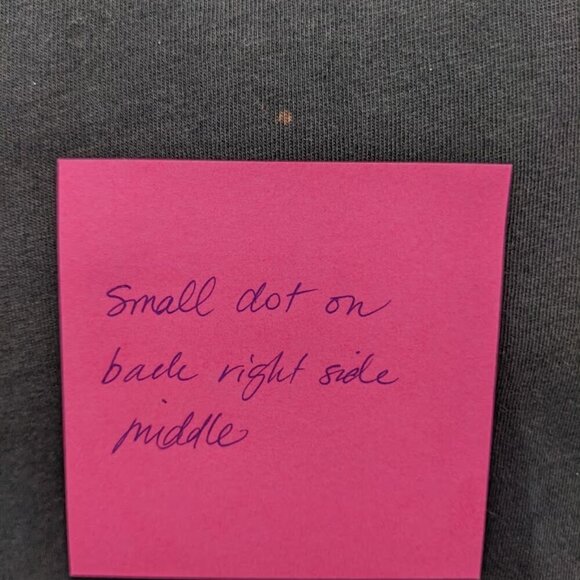 Small dot on
back right side
middle